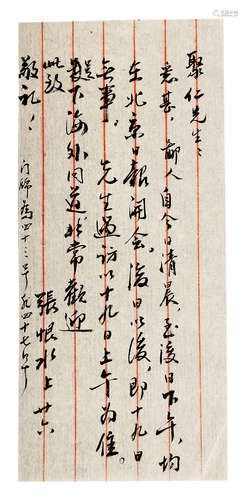 聚仁先生:
悉甚,鄙人自今日清晨,至後日下午,均
在北京日報開会,後日以後,即十九日
無事。 先生過訪以十九日上午為佳。
足下海外同道非常歡迎
此致
敬礼!
張恨水上 廿六
门牌為四十三号